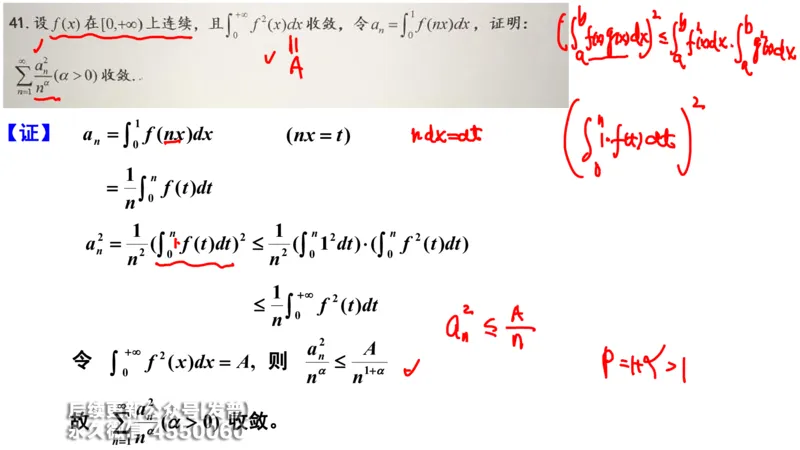 41. 设 f(x) 在[0,+∞)上连续，且∫₀^{+∞} f²(x)dx 收敛，令 aₙ = ∫₀¹ f(nx)dx，证明：
∑_{n=1}^{∞} aₙ²/n^α (α > 0) 收敛.
= A
(∫ₐᵇ f(x)g(x)dx)² ≤ ∫ₐᵇ f²(x)dx · ∫ₐᵇ g²(x)dx
【证】 aₙ = ∫₀¹ f(nx)dx (nx = t) ndx=dt
(∫₀ⁿ 1·f(t)dt)²
= 1/n ∫₀ⁿ f(t)dt
aₙ² = 1/n² (∫₀ⁿ 1 f(t)dt)² ≤ 1/n² (∫₀ⁿ 1²dt)·(∫₀ⁿ f²(t)dt)
≤ 1/n ∫₀^{+∞} f²(t)dt
aₙ² ≤ A/n
令 ∫₀^{+∞} f²(x)dx = A, 则 aₙ²/n^α ≤ A/n^{1+α}
P=1+α>1
故 ∑_{n=1}^{∞} aₙ²/n^α (α > 0) 收敛。